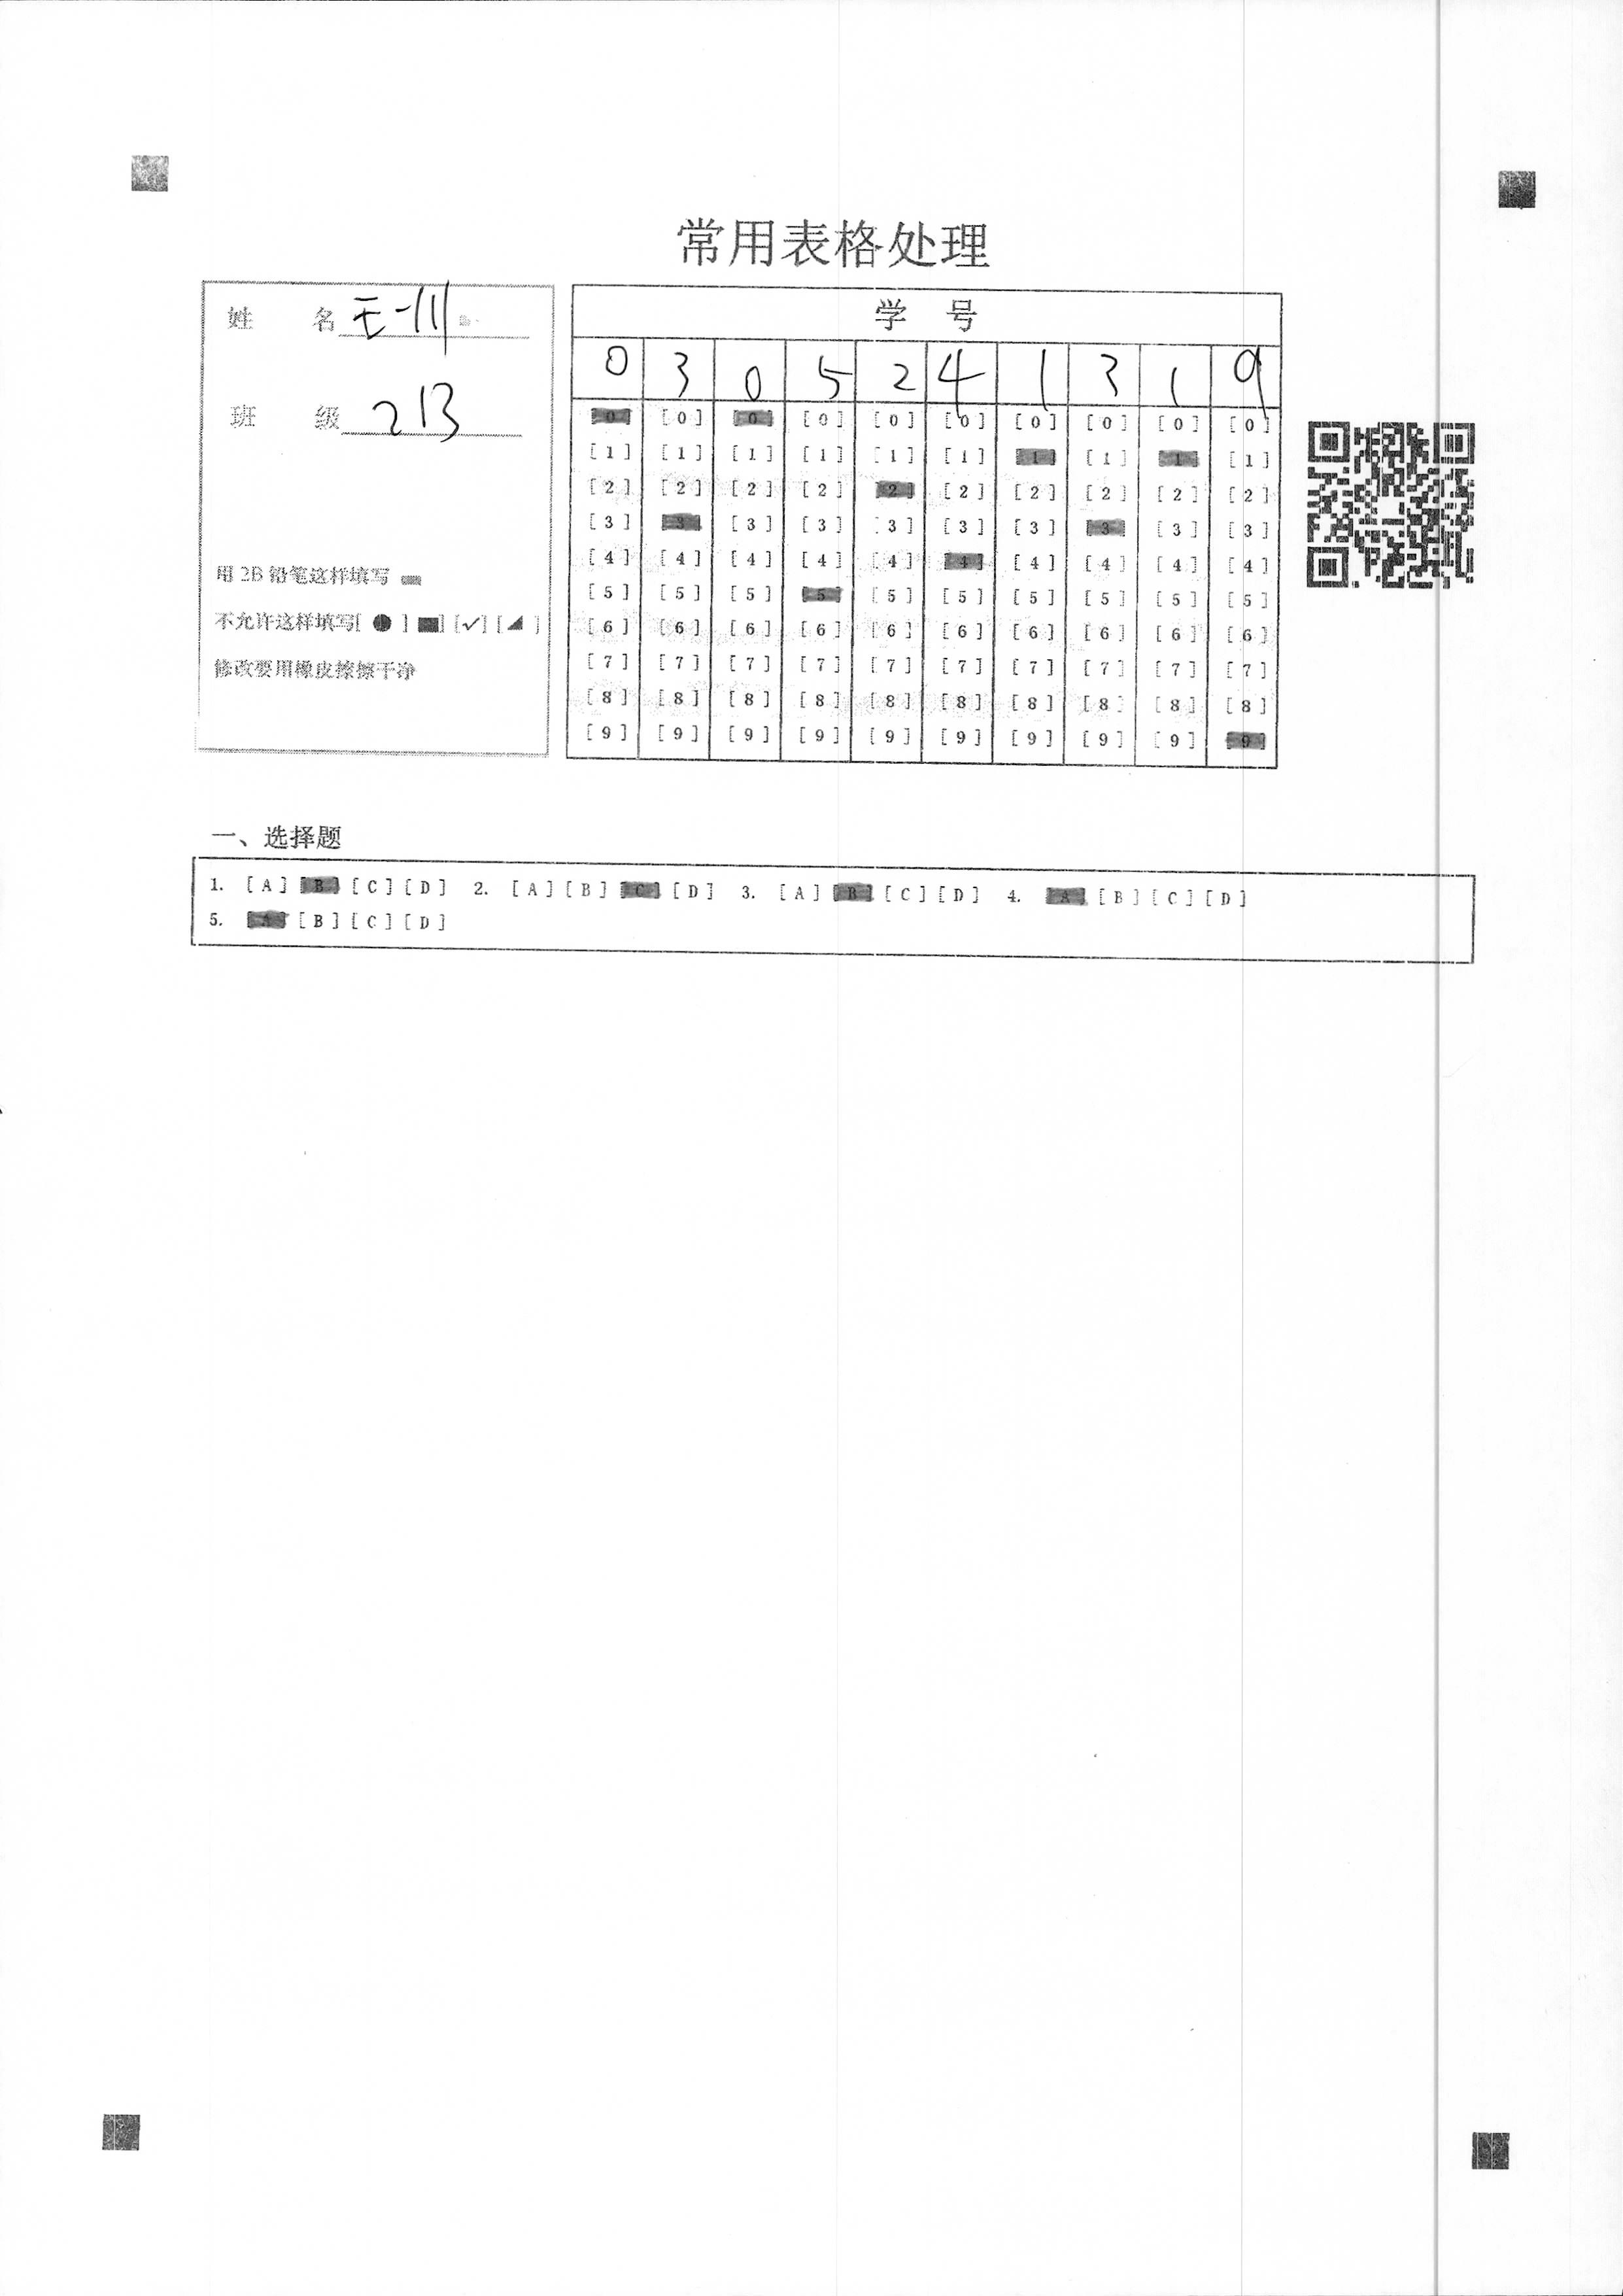 常用表格处理
姓 名
班 级 213
用 2B 铅笔这样填写
不允许这样填写[ ● ] [■] [✓] [◢ ]
修改要用橡皮擦擦干净
学 号
0 3 0 5 2 4 1 3 1 9
[0] [0] [0] [0] [0] [0] [0] [0] [0] [0]
[1] [1] [1] [1] [1] [1] [1] [1] [1] [1]
[2] [2] [2] [2] [2] [2] [2] [2] [2] [2]
[3] [3] [3] [3] [3] [3] [3] [3] [3] [3]
[4] [4] [4] [4] [4] [4] [4] [4] [4] [4]
[5] [5] [5] [5] [5] [5] [5] [5] [5] [5]
[6] [6] [6] [6] [6] [6] [6] [6] [6] [6]
[7] [7] [7] [7] [7] [7] [7] [7] [7] [7]
[8] [8] [8] [8] [8] [8] [8] [8] [8] [8]
[9] [9] [9] [9] [9] [9] [9] [9] [9] [9]
一、选择题
1. [A] [B] [C] [D] 2. [A] [B] [C] [D] 3. [A] [B] [C] [D] 4. [A] [B] [C] [D]
5. [A] [B] [C] [D]